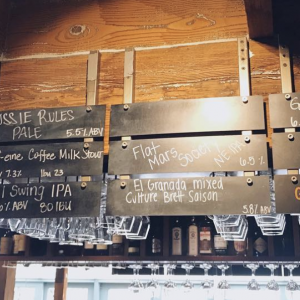 SSIE RULES
PALE 5.5% ABV
eme Coffee Milk Stout
7.3%
l Swing IPA
% ABV 80 IBU
Flat
Mars Society NE IPA
6.5%
El Granada mixed
Culture Brett Saison
5.8% ABV